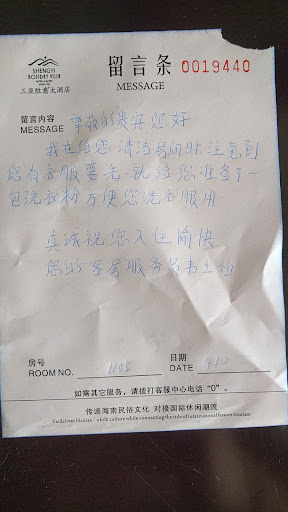 SHENGYI
HOLIDAY VILLA
三亚胜意大酒店
留言条 0019440
MESSAGE
留言内容
MESSAGE
尊敬的贵宾您好
我在给您清洁房间时注意到
您有衣服要洗,就给您准备了一
包洗衣粉方便您洗衣服用
真诚祝您入住愉快
您的客房服务员
房号
ROOM NO. 1105
日期
DATE 4.10
如需其它服务,请拨打客服中心电话“0”。
传递海南民俗文化 对接国际休闲潮流
To deliver Hainan's folk culture while connecting the tide of international leisure tourism